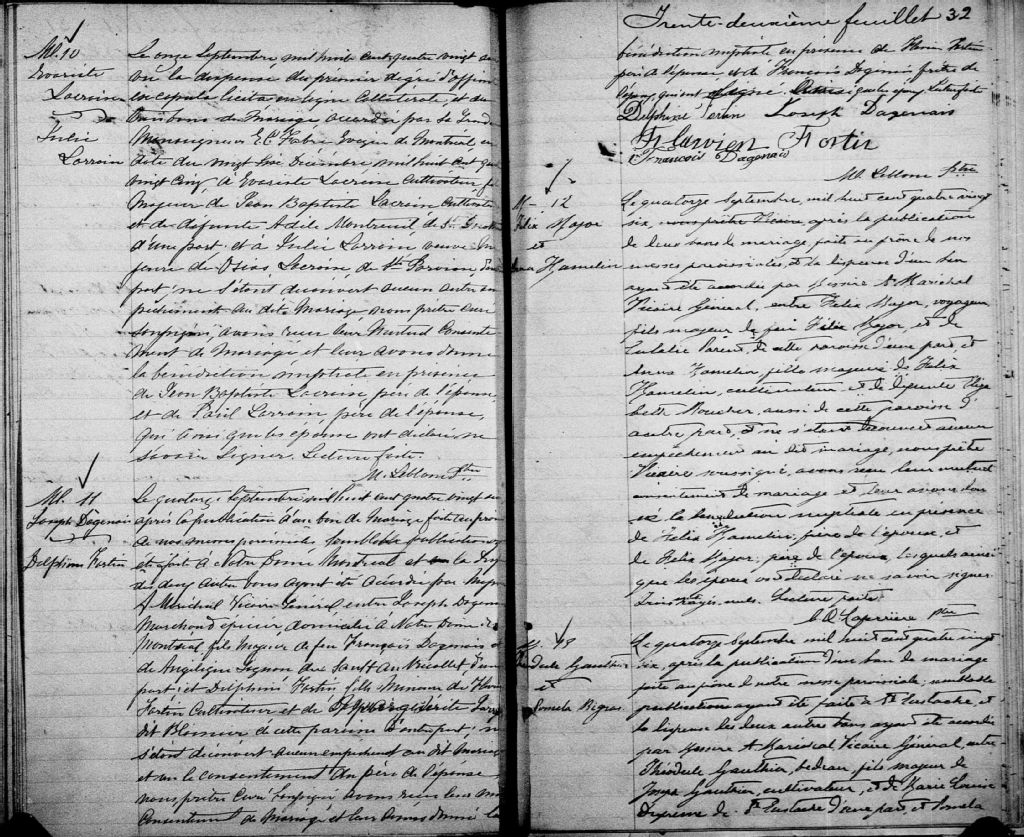 M. 10
Evariste
Lacroix
&
Julie
Lorrain
Le onze Septembre mil huit cent quatre vingt
vu la dispense du premier degré d'affin
ex copula licita en ligne Collatérale, et du
bans de Mariage accordée par Sa Grand
Monseigneur E. C. Fabre Evêque de Montréal, en
date du vingt Décembre mil huit cent qua
vingt cinq, à Evariste Lacroix Cultivateur fi
Majeur de Jean Baptiste Lacroix Cultivate
et de défunte Adele Montreuil de St
d'une part et à Julie Lorrain veuve
de Osias Lacroix de d'au
part; ne s'étant découvert aucun autre em
pêchement au dit Mariage nous prêtre Curé
Soussigné, avons reçu leur Mutuel Consente
ment de Mariage et leur avons donné
la bénédiction nuptiale en présence
de Jean Baptiste Lacroix, père de l'époux
et de Paul Lorrain, père de l'épouse,
qui ainsi que les époux ont déclaré ne
savoir Signer. Lecture faite.
M. Leblond Ptre
M. 11
Joseph Dagenais
&
Delphine Fortin
Le quatorze Septembre mil huit cent quatre vingt six
après la publication d'un ban de Mariage faite en prône
de nos messes paroissiales semblable publication ay
été faite à Notre Dame Montréal et la Dis
de deux autres bans ayant été accordée par Messire
A Maréchal Vicaire Général entre Joseph Dagenais
Marchand épicier, domicilié à Notre Dame de
Montréal, fils Majeur de feu François Dagenais &
de Angélique du Sault au Récollet, d'une
part; et Delphine Fortin fille Mineure de Flavien
Fortin Cultivateur et de Marguerite
dit de cette paroisse d'autre part; ne
s'étant découvert aucun empêchement au dit Mariage
et vu le consentement du père de l'épouse,
nous prêtre Curé Soussigné avons reçu leur mu
Consentement de Mariage et leur avons donné la
Trente-deuxième feuillet 32
bénédiction nuptiale en présence de Flavien Fortin
père de l'épouse et de François Dagenais frère de
l'époux, qui ont signé ainsi que les époux, lecture faite
Delphine Fortin Joseph Dagenais
Flavien Fortin
Francois Dagenais
M. Leblond ptre
M - 12
Félix Major
et
Hamelin
Le quatorze Septembre, mil huit cent quatre vingt
six, nous prêtre Vicaire, après la publication
de deux bans de mariage, faite au prône de nos
messes paroissiales, et la dispense d'un ban
ayant été accordée par Messire A. Maréchal
Vicaire Général, entre Félix Major, voyageur,
fils majeur de feu Félix Major, et de
Eulalie Parent, de cette paroisse d'une part, et
Hamelin fille majeure de Félix
Hamelin, cultivateur, et de défunte Eliza
beth aussi de cette paroisse d'
autre part, et ne s'étant découvert aucun
empêchement au dit mariage, nous prêtre
Vicaire soussigné, avons reçu leur mutuel
consentement de mariage et leur avons don
né la bénédiction nuptiale en présence
de Félix Hamelin, père de l'épouse, et
de Félix Major, de l'époux, lesquels ainsi
que les époux ont déclaré ne savoir signer.
nuls. Lecture faite
Laferrière ptre
M 13
Théodule Gauthier
et
Bigras
Le quatorze Septembre mil huit cent quatre vingt
six, après la publication d'un ban de mariage
faite au prône de notre messe paroissiale, semblable
publication ayant été faite à St Eustache, et
la dispense des deux autres bans ayant été accordée
par Messire A Maréchal Vicaire Général, entre
Théodule Gauthier, bedeau, fils majeur de
Joseph Gauthier, cultivateur, et de Marie Louise
de St Eustache d'une part, et